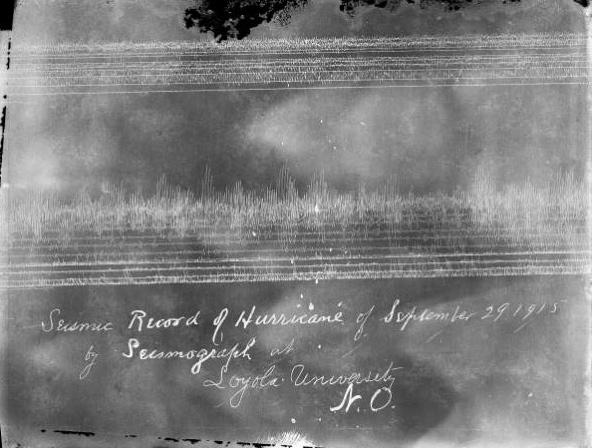 Seismic Record of Hurricane of September 29 1915
by Seismograph at
Loyola University
N.O.